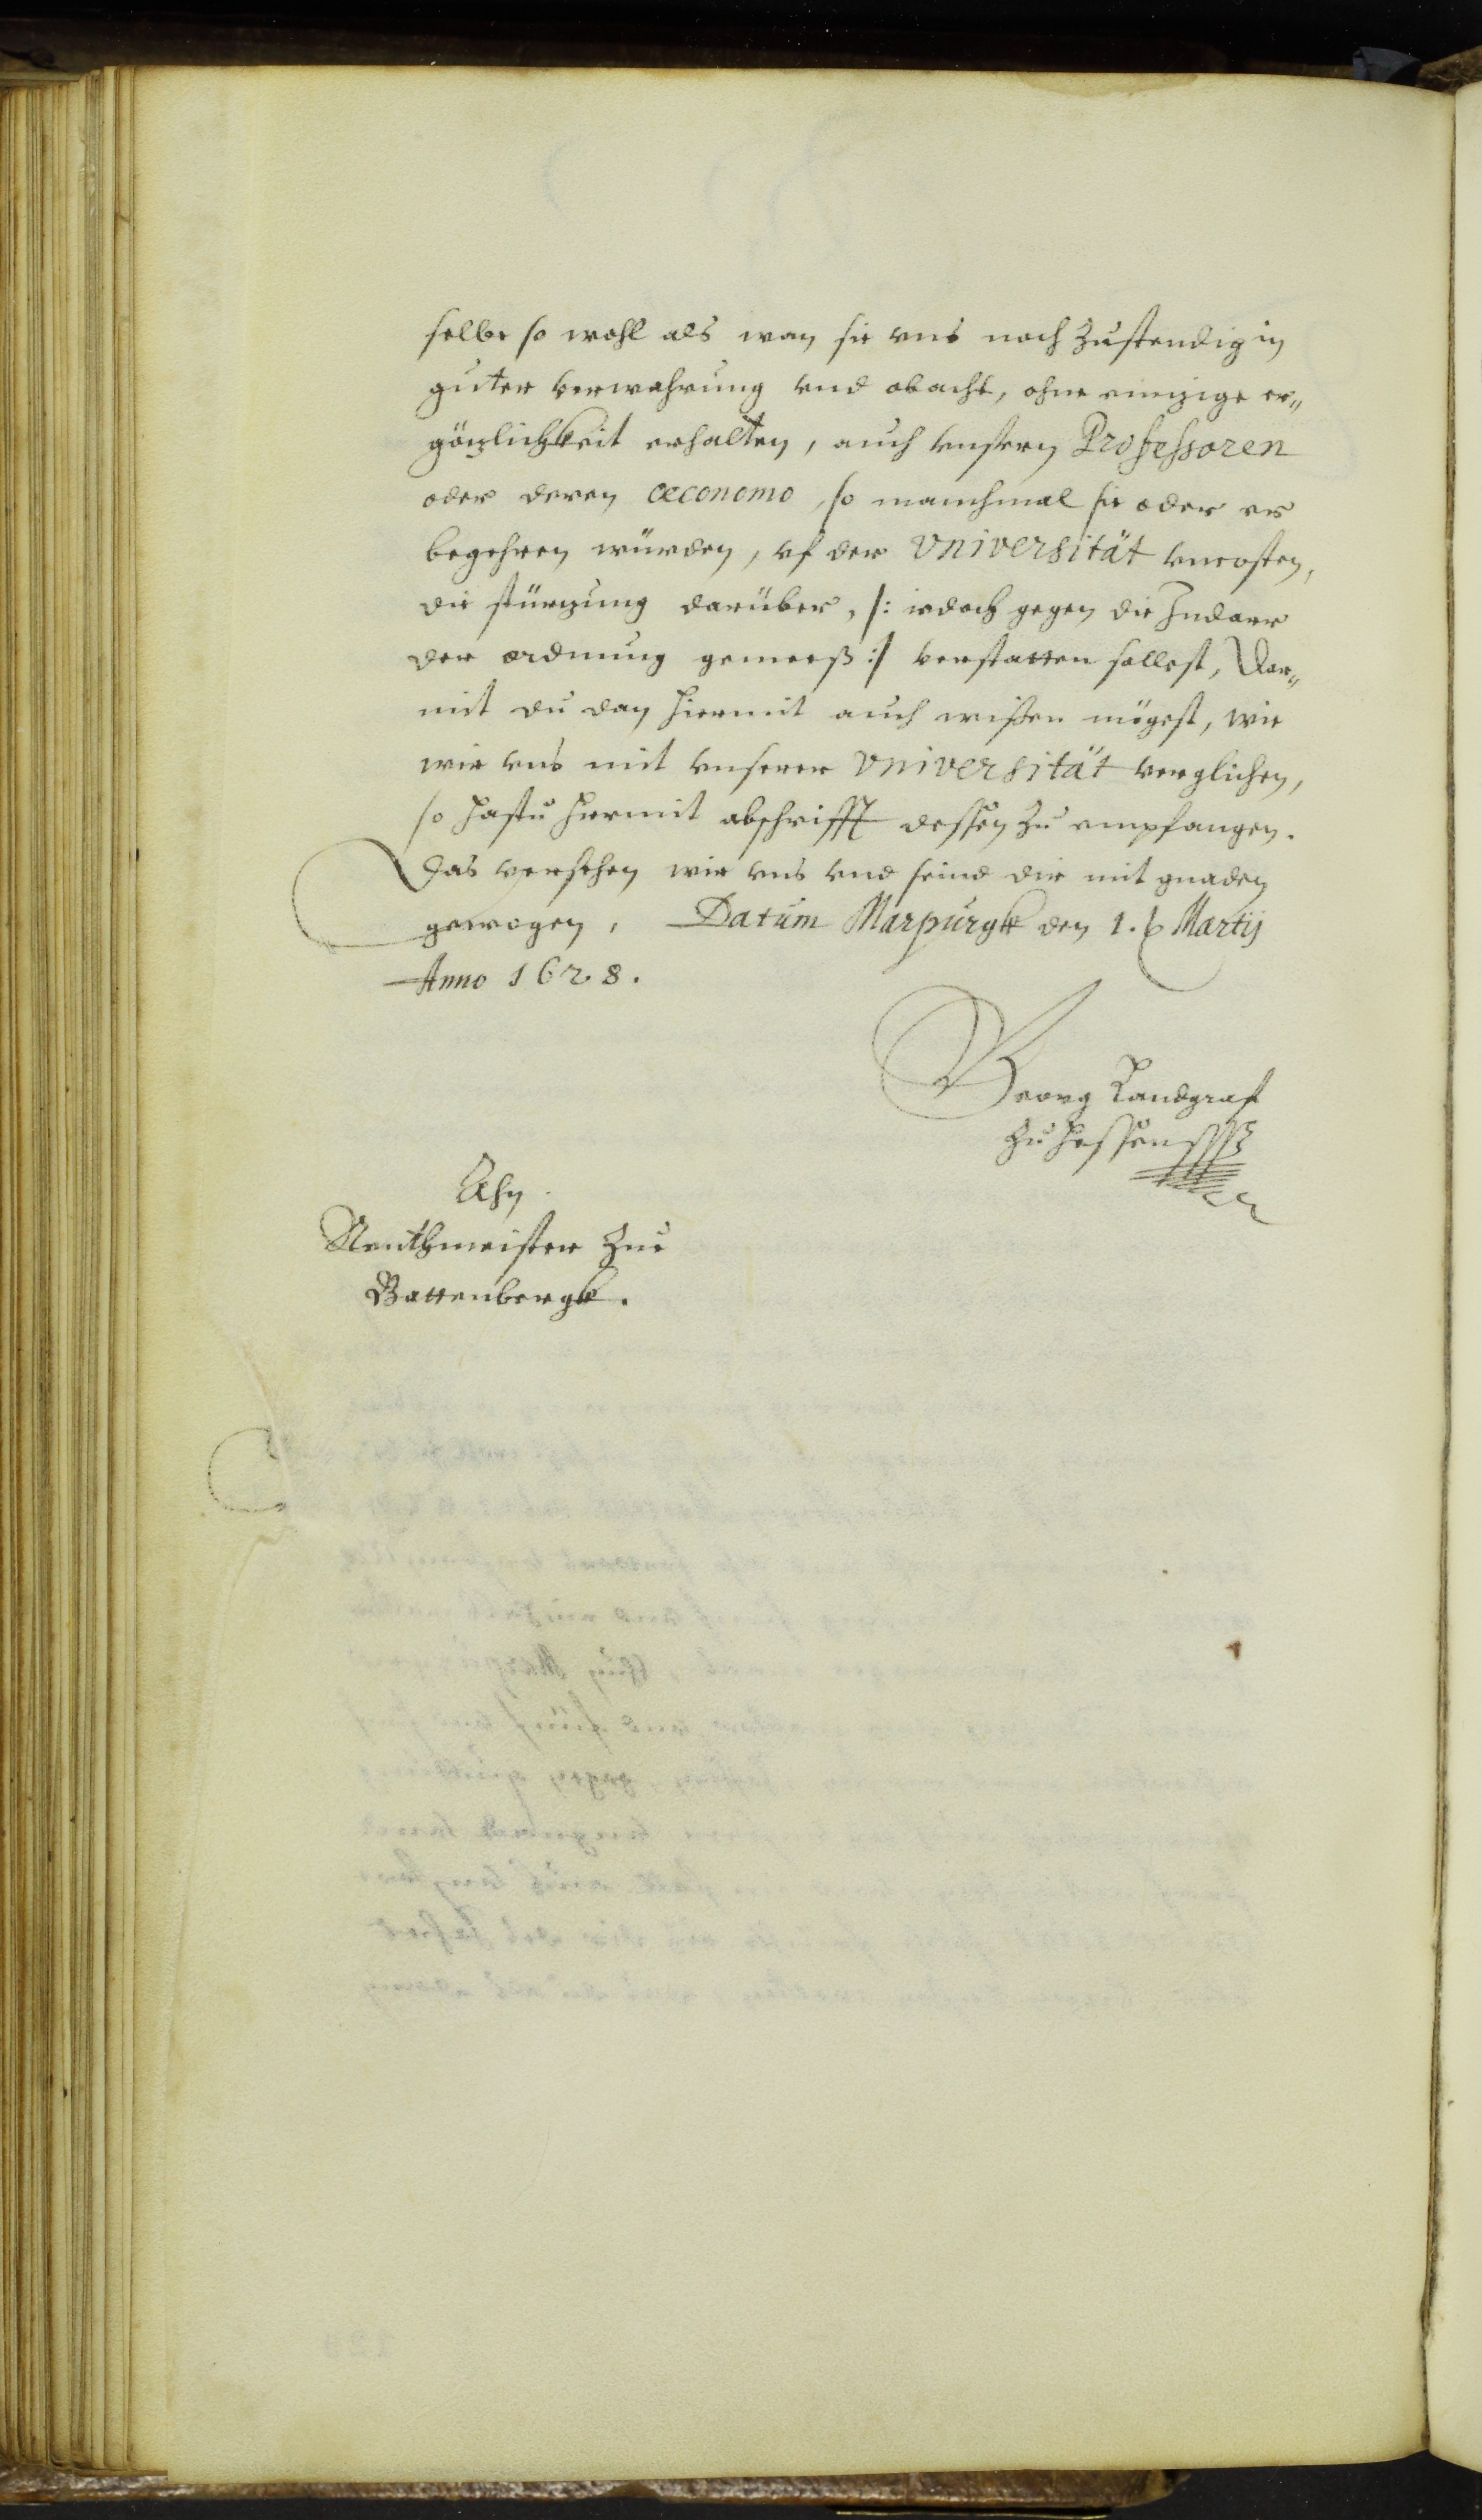 selbe so wohl als wan sie vns noch zustendig in
guter verwahrung vnd obacht, ohne einzige er„
gözlichkeit erhalten, auch vnsern Professoren
oder deren œconomo, so manchmal sie oder er
begehren würden, vf der Vniversität vncosten,
die stürzung darüber, /: iedoch gegen die
der ordnung gemeeß :/ verstatten sollest, Dar„
mit du dan hiermit auch wißen mögest, wie
wir vns mit vnserer Vniversität verglichen,
so hastu hiermit abschrifft dessen zu empfangen.
Das versehen wir vns vnd seind dir mit gnaden
gewogen, Datum Marpurgk den 1. Martij
Anno 1628.
Georg Landgraf
zu Hessen
Ahn
Renthmeister zue
Battenbergk.